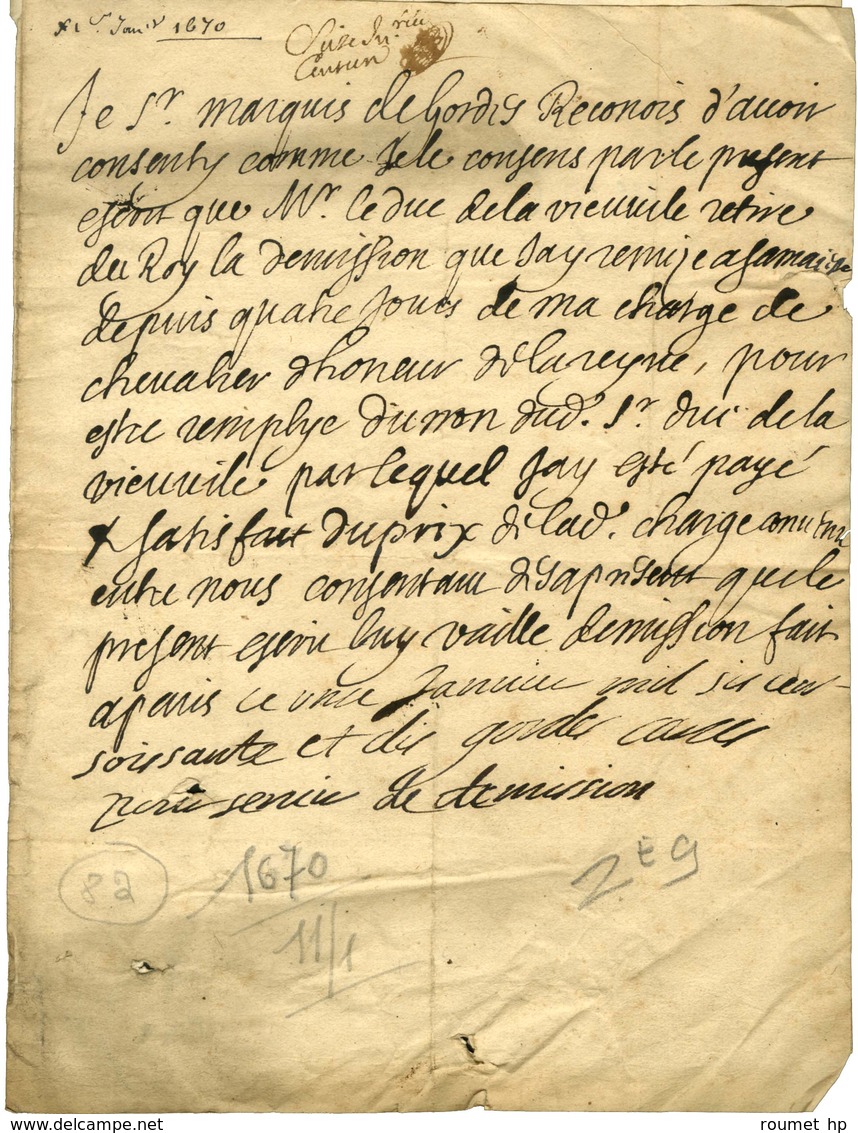 Janr 1670
Je Sr. marquis de Gordes Reconois d'auoir
consenty comme Je le consens par le present
escrit que Mr. le duc de la vieuuile retire
du Roy la demission que Jay remise a sa maieste
depuis quatre Jours de ma charge de
cheualier dhoneur de la reyne, pour
estre remplye du nom dud. Sr. duc de la
vieuuile par lequel Jay esté payé
& satisfait du prix de lad. charge conuenu
entre nous consentant des apresent que le
present escrit luy vaille demission fait
a paris ce onze Januier mil sis cens
soissante et dis gordes
pour seruir de demission
82
1670
11/1
2 E 9
roumet hp